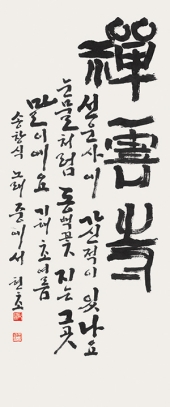 禪雲寺
선운사에 가신적이 있나요
눈물처럼 동백꽃 지는 그곳
말이에요 기해 초여름
송창식 노래 중에서 현초